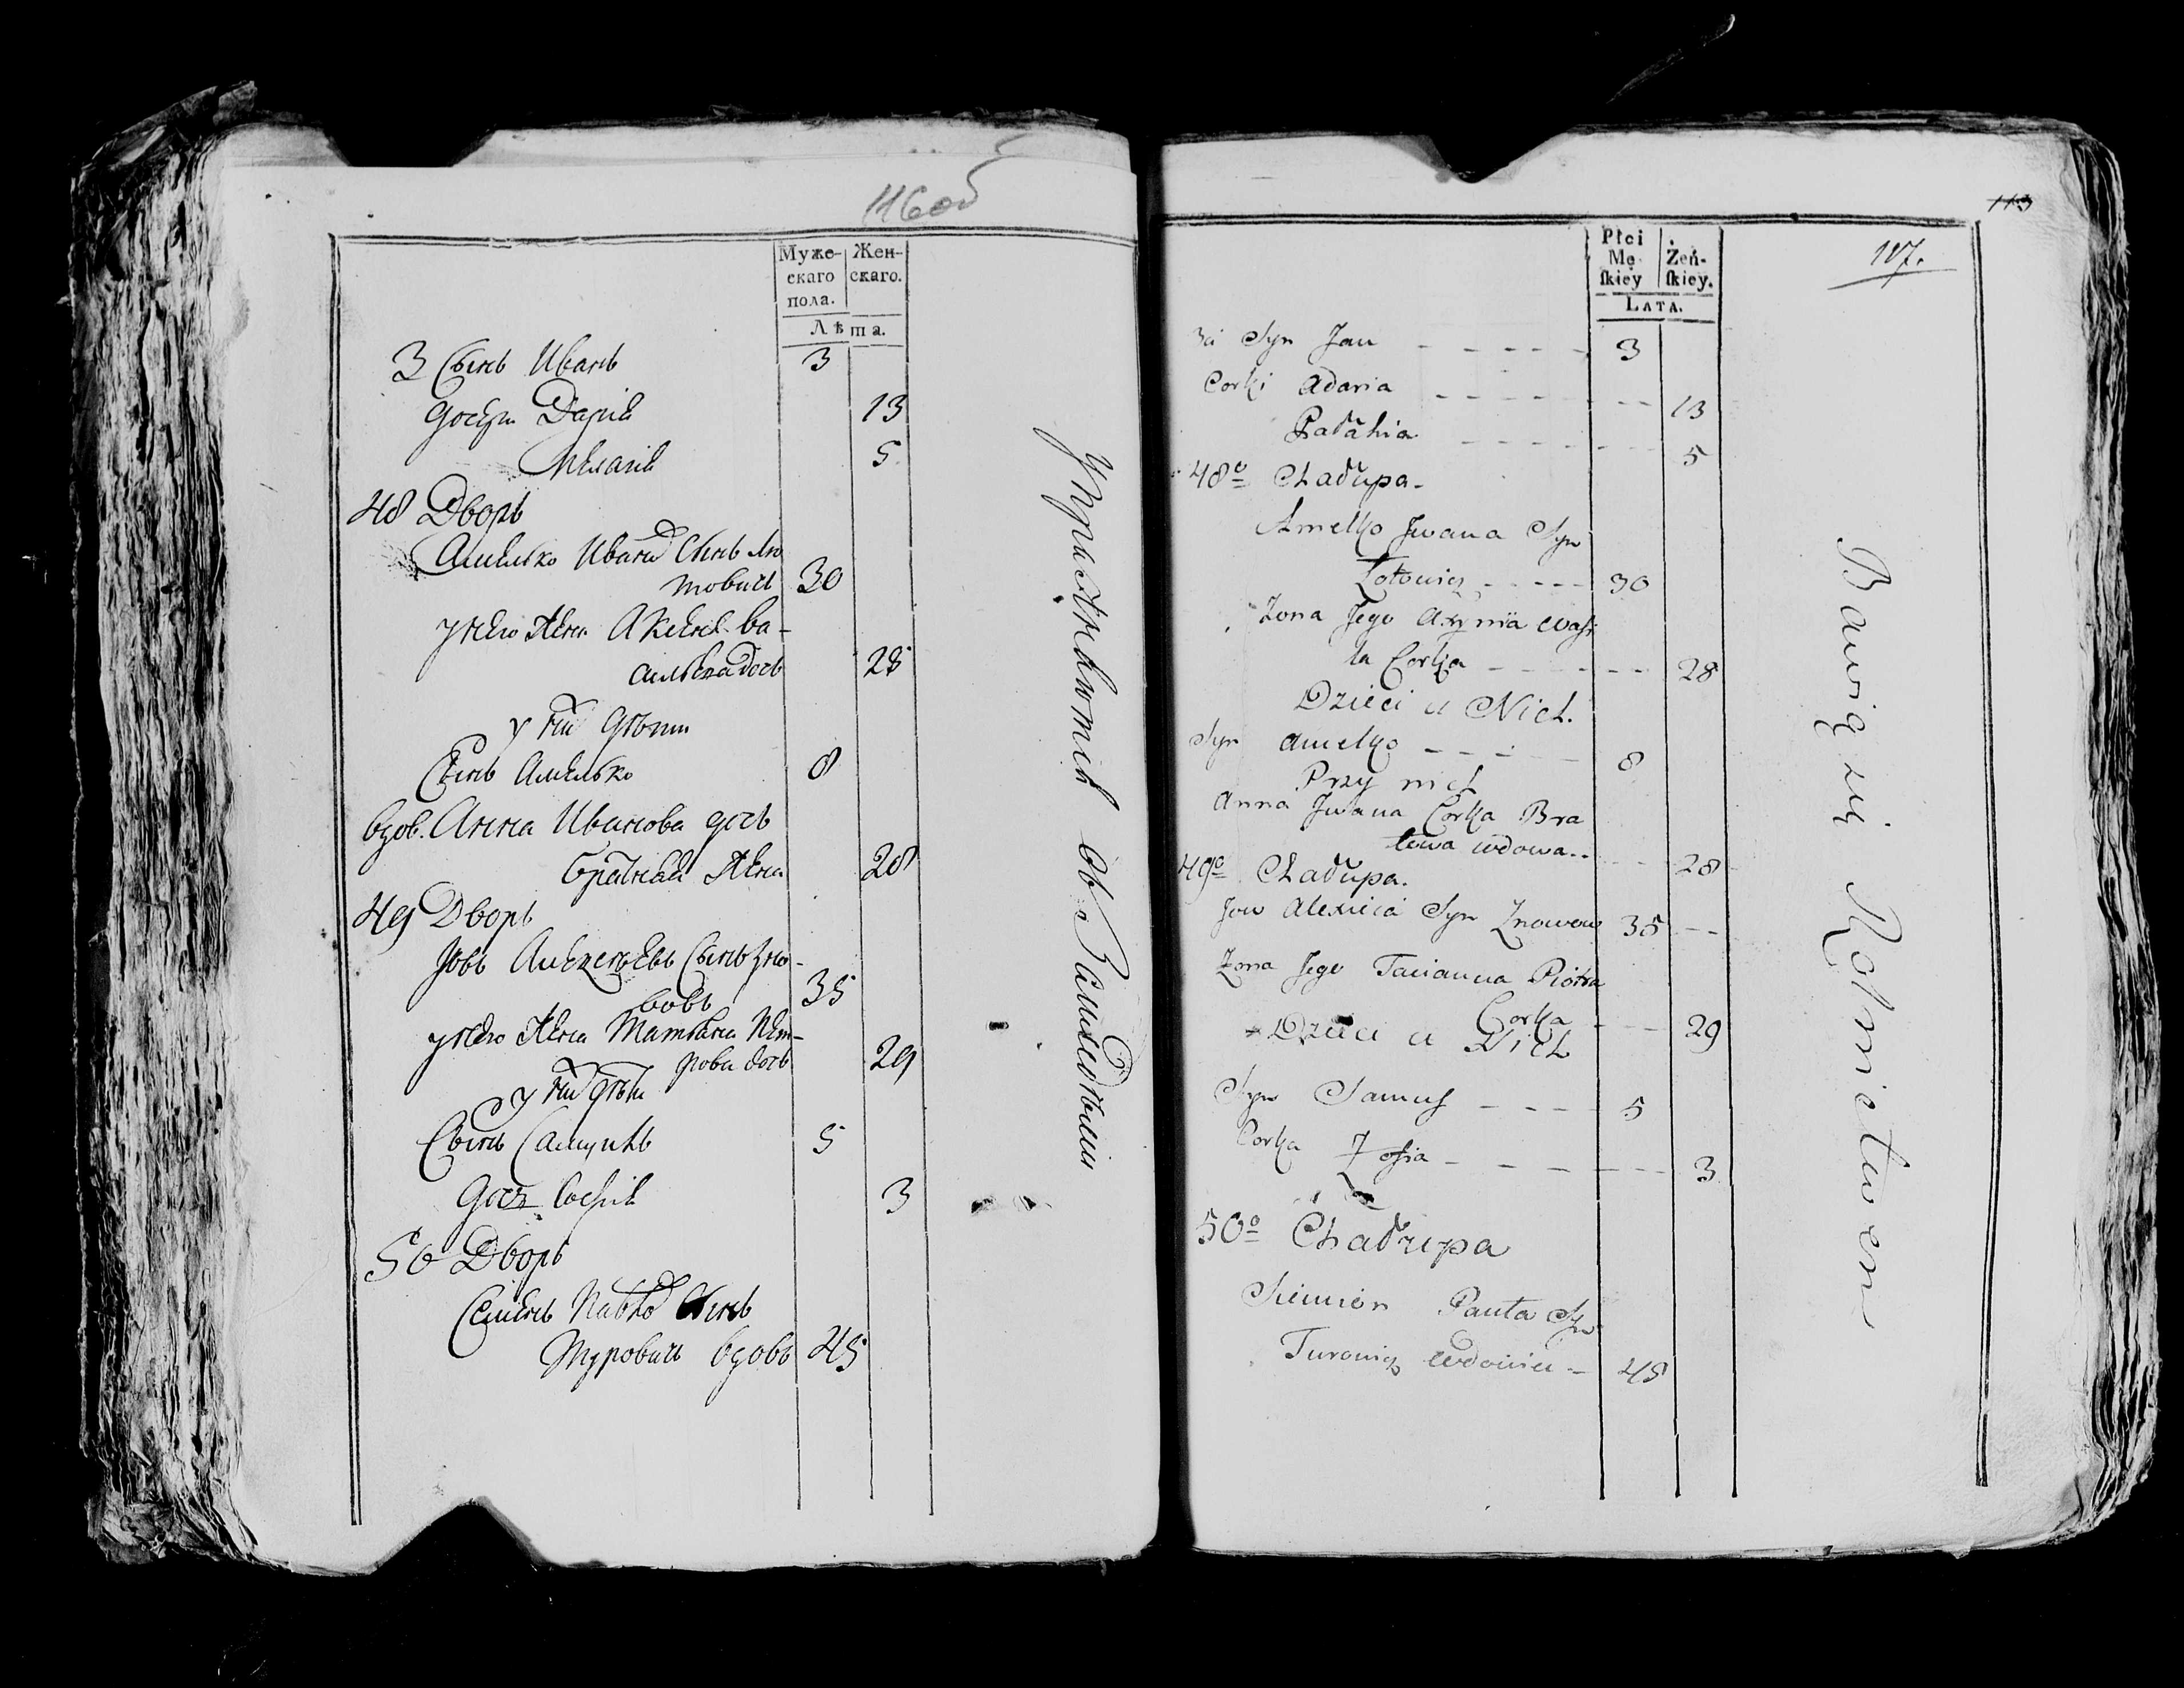 116об
Муже-
скаго
пола.
Жен-
скаго.
Лѣта.
3 Сынъ Иванъ 3
дочери Дарія 13
Меланія 5
48 Дворъ
Амелько Ивана Сынъ Лю
товичъ 30
у него жена Аксенія Ва-
сильева дочь 28
у них дѣти
Сынъ Амелько 8
вдов. Анна Иванова дочь
братняя жена 28
49 Дворъ
Іовъ Алексѣевъ Сынъ Зно-
вовъ 35
у него жена Татіана Пет-
рова дочь 29
у них дѣти
Сынъ Самуилъ 5
дочь Софія 3
50 Дворъ
Семенъ Павла Сынъ
Туровичъ вдовъ 45
Упражняются въ Земледѣлии
113
117.
Płci
Mę
ſkiey
Żeń-
ſkiey.
LATA.
3i Syn Jan 3
Corki Adaria 13
Pałahia 5
48o Chałupa
Amelko Jwana Syn
Łotowicz 30
Zona Jego Axynia Wasi
la Corka 28
Dzieci u Nich.
Syn Amelko 8
Przy nich
Anna Jwana Corka Bra
towa wdowa 28
49o Chałupa.
Jow Alexieia Syn Znowow 35
Zona Jego Tacianna Piotra
Corka 29
Dzieci u Nich
Syn Samuś 5
Corka Zofia 3
50o Chałupa
Siemion Pauła Syn
Turowicz wdowiec 45
Bawią się Rolnictwem